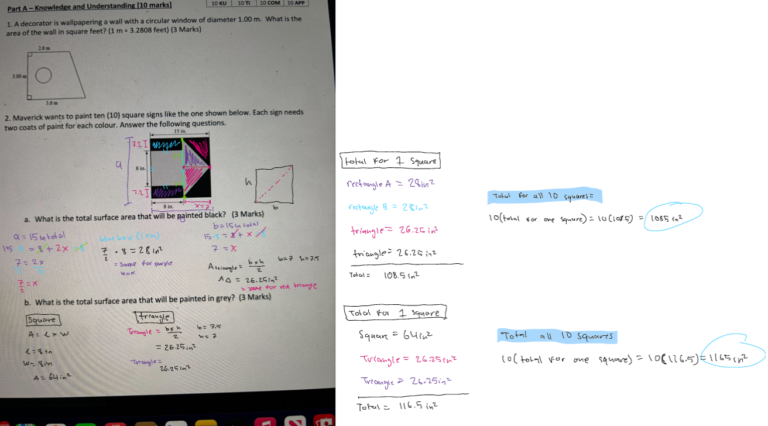 Part A – Knowledge and Understanding [10 marks]
10 KU 10 TI 10 COM 10 APP
1. A decorator is wallpapering a wall with a circular window of diameter 1.00 m. What is the
area of the wall in square feet? (1 m = 3.2808 feet) (3 Marks)
2.0 m
3.00 m
2. Maverick wants to paint ten (10) square signs like the one shown below. Each sign needs
two coats of paint for each colour. Answer the following questions.
15 in.
a
8 in.
8 in.
h
b
a. What is the total surface area that will be painted black? (3 Marks)
a = 15 in total
b = 15 in total
7 = 2x
7 = x
7/2 = x
7/2 · 8 = 28 in²
= same for purple
A triangle = b×h/2 b=7 h=7.5
A△ = 26.25 in²
= same for red triangle
b. What is the total surface area that will be painted in grey? (3 Marks)
Square
triangle
A = l × w
Triangle = b×h/2 b= 7.5
h= 7
= 26.25 in²
l = 8 in
w = 8 in
A = 64 in²
Triangle =
26.25 in²
total for 1 square
rectangle A = 28in²
rectangle B = 28in²
triangle = 26.25 in²
triangle = 26.25 in²
Total = 108.5 in²
Total for all 10 squares =
10(total for one square) = 10(108.5) = 1085 in²
Total for 1 square
Square = 64in²
Triangle = 26.25in²
Triangle = 26.25in²
Total = 116.5 in²
Total all 10 squares
10(total for one square) = 10(116.5) = 1165 in²